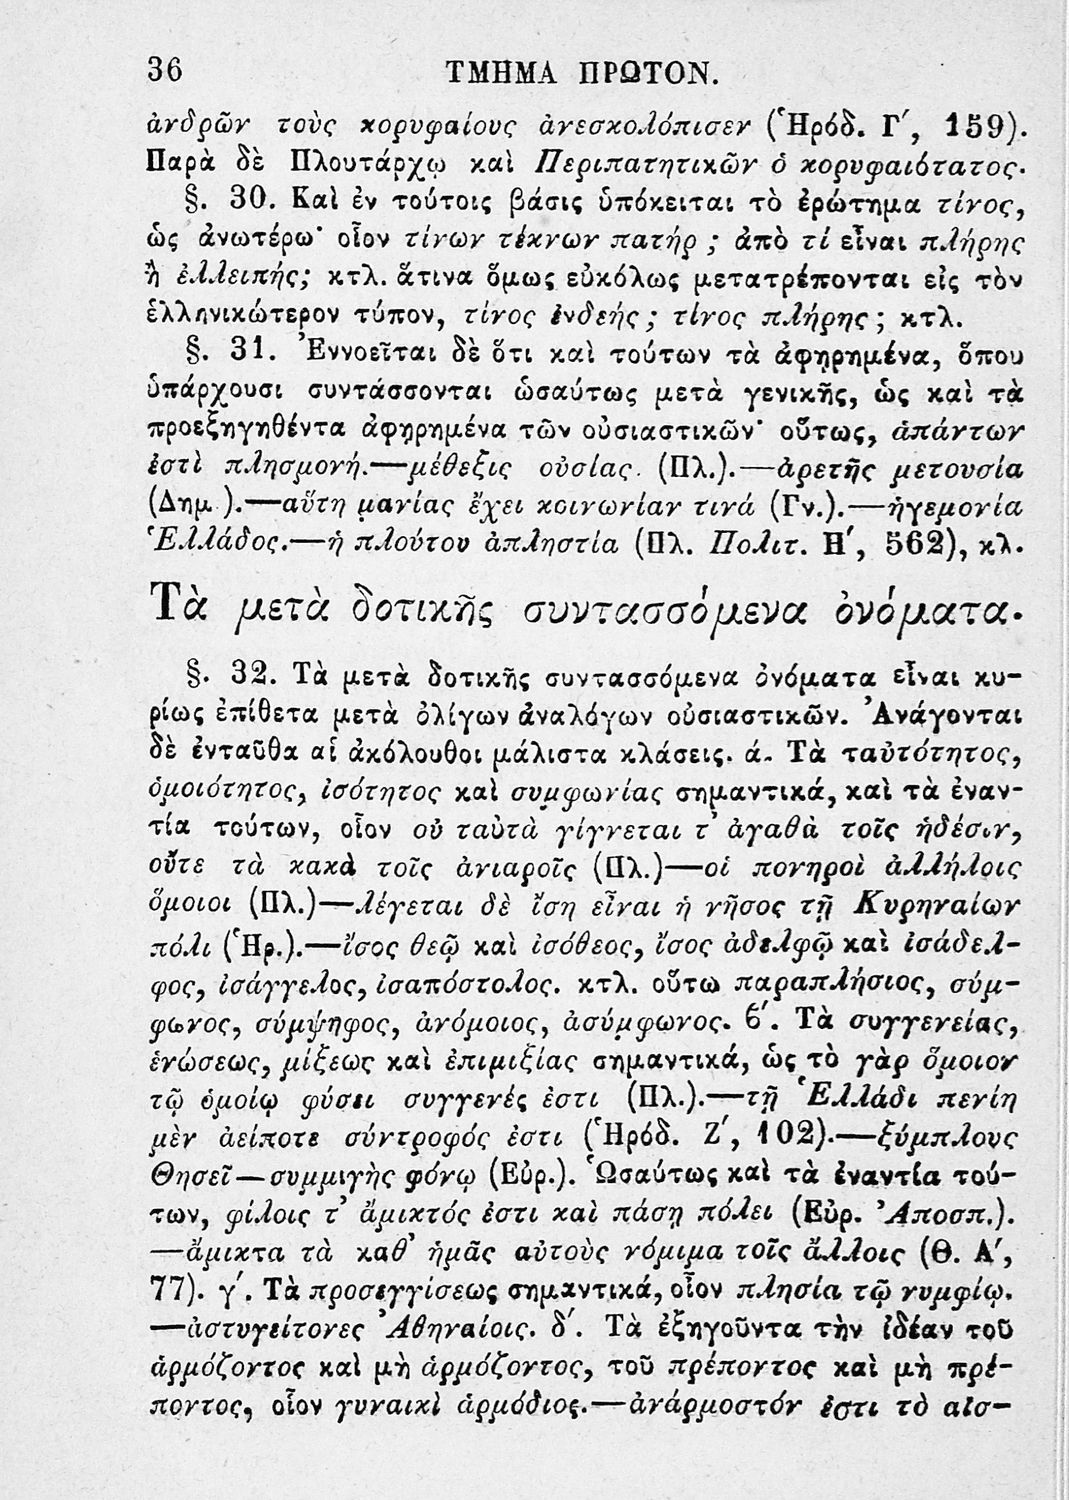 36 ΤΜΗΜΑ ΠΡΩΤΟΝ.
ἀνδρῶν τοὺς κορυφαίους ἀνεσκολόπισεν (Ἡρόδ. Γ΄, 159).
Παρὰ δὲ Πλουτάρχῳ καὶ Περιπατητικῶν ὁ κορυφαιότατος.
§. 30. Καὶ ἐν τούτοις βάσις ὑπόκειται τὸ ἐρώτημα τίνος,
ὡς ἀνωτέρω· οἷον τίνων τέκνων πατήρ ; ἀπὸ τί εἶναι πλήρης
ἢ ἐλλειπής; κτλ. ἅτινα ὅμως εὐκόλως μετατρέπονται εἰς τὸν
ἑλληνικώτερον τύπον, τίνος ἐνδεής ; τίνος πλήρης ; κτλ.
§. 31. Ἐννοεῖται δὲ ὅτι καὶ τούτων τὰ ἀφῃρημένα, ὅπου
ὑπάρχουσι συντάσσονται ὡσαύτως μετὰ γενικῆς, ὡς καὶ τὰ
προεξηγηθέντα ἀφῃρημένα τῶν οὐσιαστικῶν· οὕτως, ἁπάντων
ἐστὶ πλησμονή.—μέθεξις οὐσίας. (Πλ.).—ἀρετῆς μετουσία
(Δημ.).—αὕτη μανίας ἔχει κοινωνίαν τινά (Γν.).—ἡγεμονία
Ἑλλάδος.—ἡ πλούτου ἀπληστία (Πλ. Πολιτ. Η΄, 562), κλ.
Τὰ μετὰ δοτικῆς συντασσόμενα ὀνόματα.
§. 32. Τὰ μετὰ δοτικῆς συντασσόμενα ὀνόματα εἶναι κυ-
ρίως ἐπίθετα μετὰ ὀλίγων ἀναλόγων οὐσιαστικῶν. Ἀνάγονται
δὲ ἐνταῦθα αἱ ἀκόλουθοι μάλιστα κλάσεις. ά. Τὰ ταὐτότητος,
ὁμοιότητος, ἰσότητος καὶ συμφωνίας σημαντικά, καὶ τὰ ἐναν-
τία τούτων, οἷον οὐ ταὐτὰ γίγνεται τ᾽ ἀγαθὰ τοῖς ἡδέσιν,
οὔτε τὰ κακὰ τοῖς ἀνιαροῖς (Πλ.)—οἱ πονηροὶ ἀλλήλοις
ὅμοιοι (Πλ.)—λέγεται δὲ ἴση εἶναι ἡ νῆσος τῇ Κυρηναίων
πόλι (Ἡρ.).—ἴσος θεῷ καὶ ἰσόθεος, ἴσος ἀδελφῷ καὶ ἰσάδελ-
φος, ἰσάγγελος, ἰσαπόστολος. κτλ. οὕτω παραπλήσιος, σύμ-
φωνος, σύμψηφος, ἀνόμοιος, ἀσύμφωνος. ϐ΄. Τὰ συγγενείας,
ἑνώσεως, μίξεως καὶ ἐπιμιξίας σημαντικά, ὡς τὸ γὰρ ὅμοιον
τῷ ὁμοίῳ φύσει συγγενές ἐστι (Πλ.).—τῇ Ἑλλάδι πενίη
μὲν ἀείποτε σύντροφός ἐστι (Ἡρόδ. Ζ΄, 102).—ξύμπλους
Θησεῖ—συμμιγὴς φόνῳ (Εὐρ.). Ὡσαύτως καὶ τὰ ἐναντία τού-
των, φίλοις τ᾽ ἄμικτός ἐστι καὶ πάσῃ πόλει (Εὐρ. Ἀποσπ.).
—ἄμικτα τὰ καθ᾽ ἡμᾶς αὐτοὺς νόμιμα τοῖς ἄλλοις (Θ. Α΄,
77). γ΄. Τὰ προσεγγίσεως σημαντικά, οἷον πλησία τῷ νυμφίῳ.
—ἀστυγείτονες Ἀθηναίοις. δ΄. Τὰ ἐξηγοῦντα τὴν ἰδέαν τοῦ
ἁρμόζοντος καὶ μὴ ἁρμόζοντος, τοῦ πρέποντος καὶ μὴ πρέ-
ποντος, οἷον γυναικὶ ἁρμόδιος.—ἀνάρμοστόν ἐστι τὸ αἰσ-